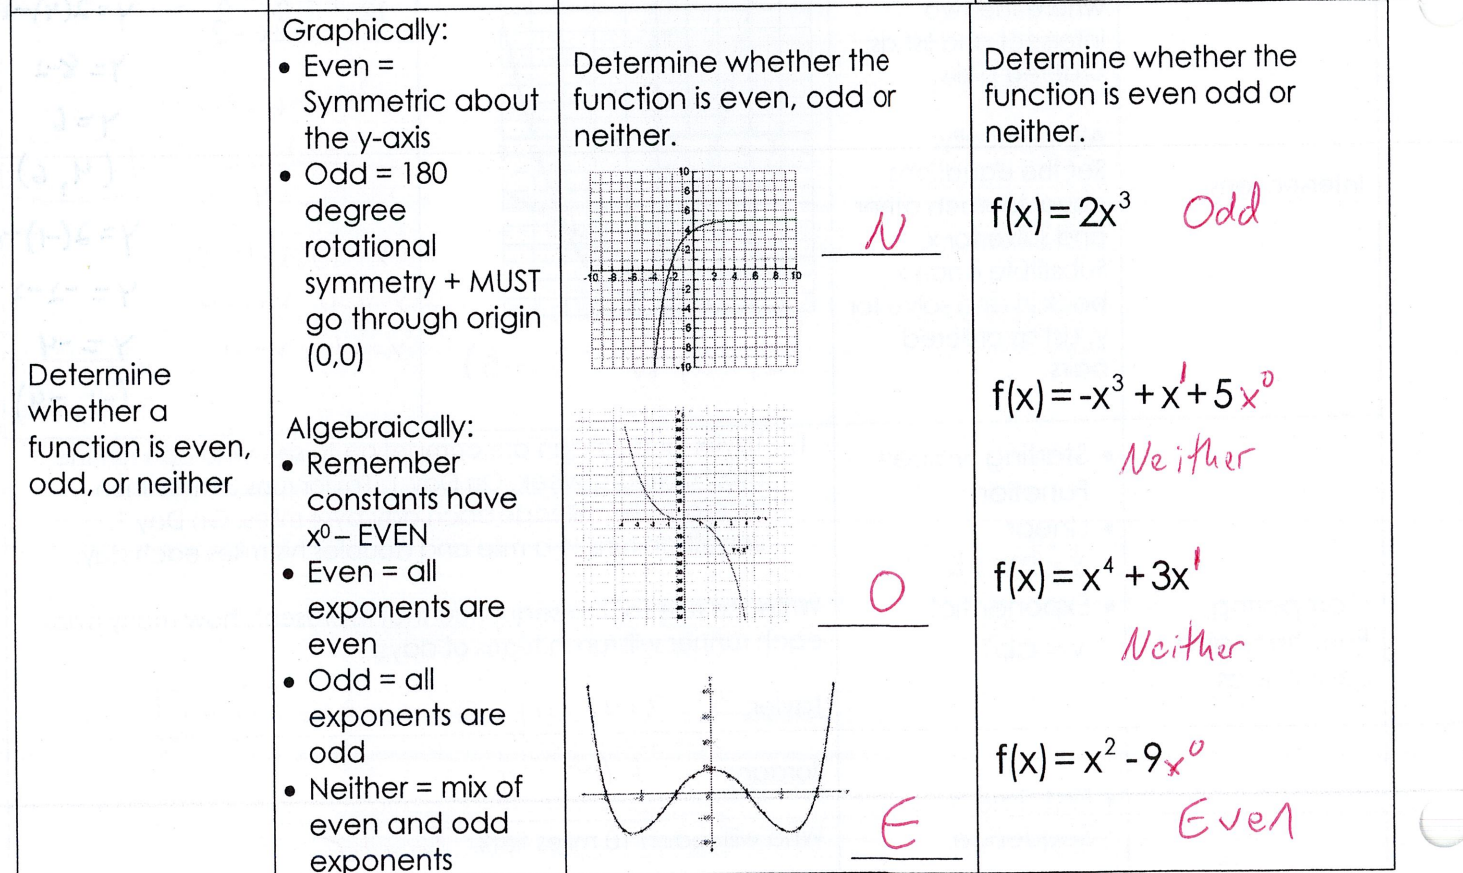 Determine
whether a
function is even,
odd, or neither
Graphically:
• Even =
Symmetric about
the y-axis
• Odd = 180
degree
rotational
symmetry + MUST
go through origin
(0,0)
Algebraically:
• Remember
constants have
x⁰ – EVEN
• Even = all
exponents are
even
• Odd = all
exponents are
odd
• Neither = mix of
even and odd
exponents
Determine whether the
function is even, odd or
neither.
N
O
E
Determine whether the
function is even odd or
neither.
f(x) = 2x³ Odd
f(x) = -x³ + x¹ + 5x⁰
Neither
f(x) = x⁴ + 3x¹
Neither
f(x) = x² - 9x⁰
Even